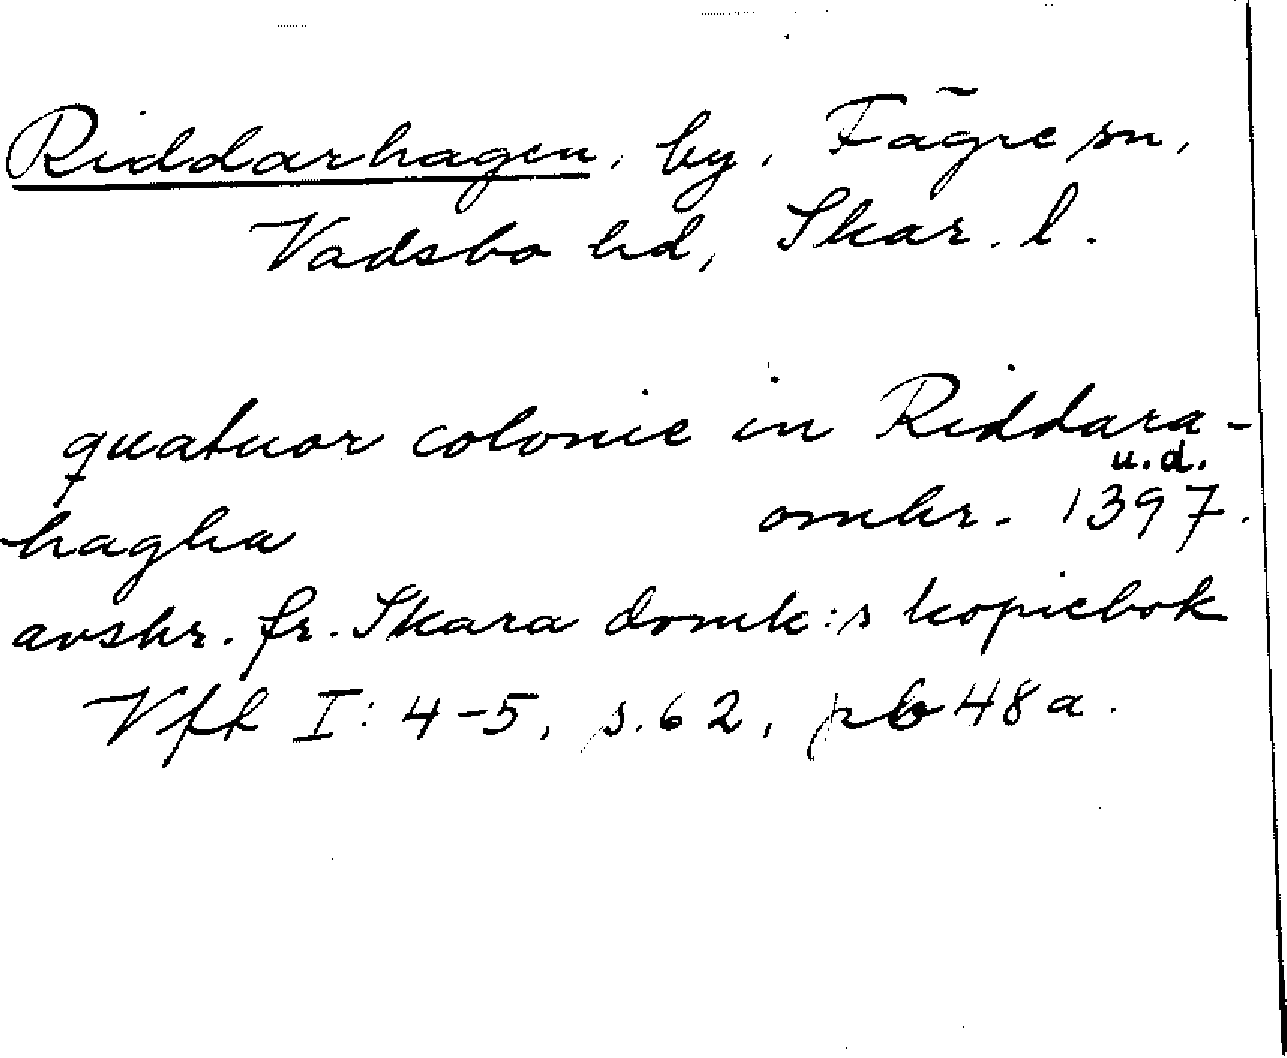 Riddarhagen, by, Fägre sn,
Vadsbo hd, Skar. l.
quatuor colonie in Riddara-
u.d.
hagha omkr. 1397.
avskr. fr. Skara domk:s kopiebok
Vff I: 4-5, s. 62, 48a.